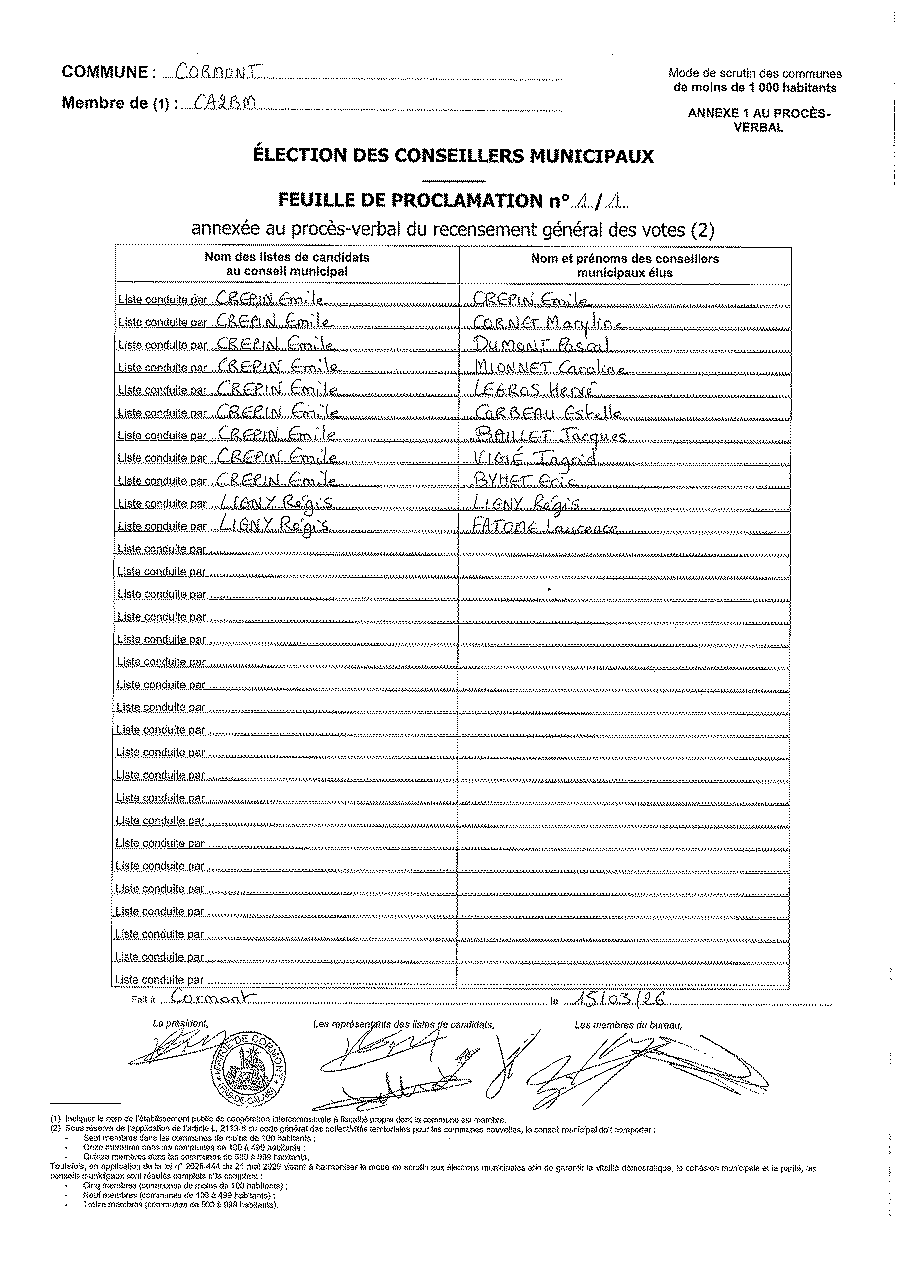 COMMUNE : CORMONT
Mode de scrutin des communes
de moins de 1 000 habitants
Membre de (1) : CA2BM
ANNEXE 1 AU PROCÈS-
VERBAL
ÉLECTION DES CONSEILLERS MUNICIPAUX
FEUILLE DE PROCLAMATION n° 1 / 1
annexée au procès-verbal du recensement général des votes (2)
Nom des listes de candidats
au conseil municipal
Nom et prénoms des conseillers
municipaux élus
Liste conduite par CREPIN Emile CREPIN Emile
Liste conduite par CREPIN Emile CORNET Maryline
Liste conduite par CREPIN Emile DUMONT Pascal
Liste conduite par CREPIN Emile MIONNET Caroline
Liste conduite par CREPIN Emile LEGROS Hervé
Liste conduite par CREPIN Emile CORBEAU Estelle
Liste conduite par CREPIN Emile BAILLET Jacques
Liste conduite par CREPIN Emile Ingrid
Liste conduite par CREPIN Emile Eric
Liste conduite par LIGNY Régis LIGNY Régis
Liste conduite par LIGNY Régis FATOME Laurence
Liste conduite par
Liste conduite par
Liste conduite par
Liste conduite par
Liste conduite par
Liste conduite par
Liste conduite par
Liste conduite par
Liste conduite par
Liste conduite par
Liste conduite par
Liste conduite par
Liste conduite par
Liste conduite par
Liste conduite par
Liste conduite par
Liste conduite par
Liste conduite par
Liste conduite par
Liste conduite par
Fait à Cormont le 15/03/26
Le président, Les représentants des listes de candidats, Les membres du bureau,
MAIRIE DE CORMONT
PAS-DE-CALAIS
(1) Indiquer le nom de l'établissement public de coopération intercommunale à fiscalité propre dont la commune est membre.
(2) Sous réserve de l'application de l'article L. 2113-8 du code général des collectivités territoriales pour les communes nouvelles, le conseil municipal doit comporter :
- Sept membres dans les communes de moins de 100 habitants ;
- Onze membres dans les communes de 100 à 499 habitants ;
- Quinze membres dans les communes de 500 à 999 habitants.
Toutefois, en application de la loi n° 2025-444 du 21 mai 2025 visant à harmoniser le mode de scrutin aux élections municipales afin de garantir la vitalité démocratique, la cohésion municipale et la parité, les
conseils municipaux sont réputés complets s'ils comptent :
- Cinq membres (communes de moins de 100 habitants) ;
- Neuf membres (communes de 100 à 499 habitants) ;
- Treize membres (communes de 500 à 999 habitants).